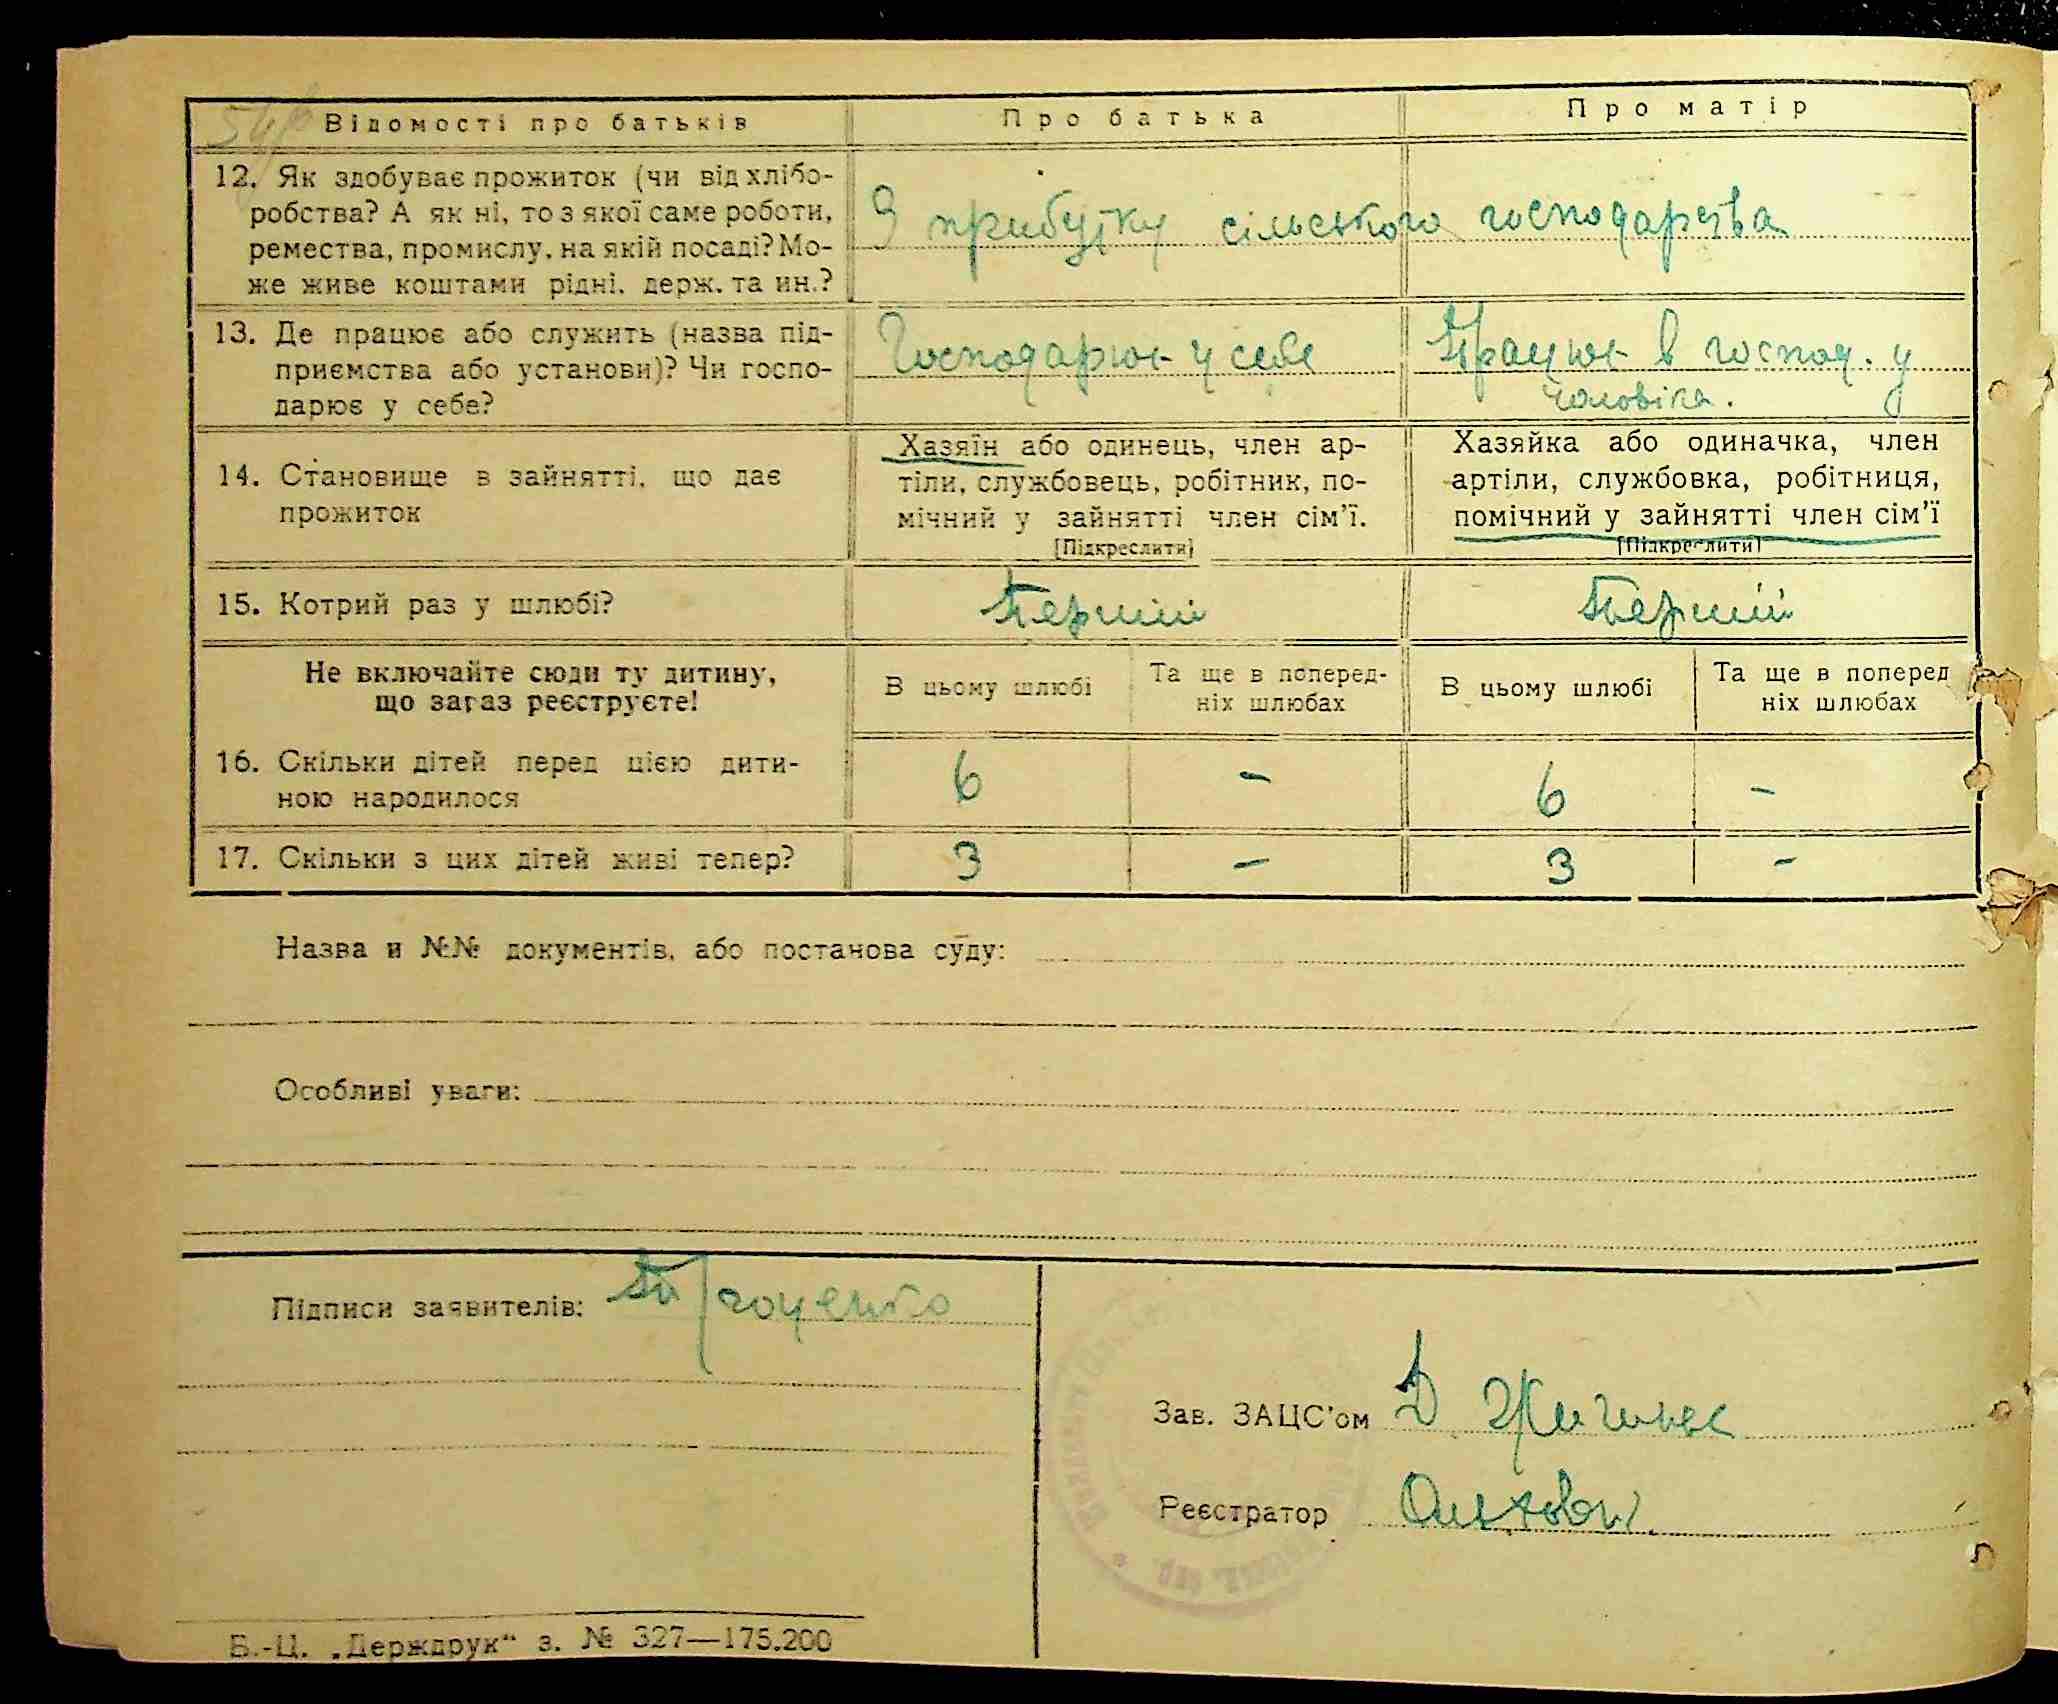 Відомості про батьків
Про батька
Про матір
12. Як здобуває прожиток (чи від хлібо-
робства? А як ні, то з якої саме роботи,
ремества, промислу, на якій посаді? Мо-
же живе коштами рідні, держ. та ин.?
З прибутку сільського господарства
13. Де працює або служить (назва під-
приємства або установи)? Чи госпо-
дарює у себе?
Господарює у себе
Працює в господ. у
чоловіка.
14. Становище в зайнятті, що дає
прожиток
Хазяїн або одинець, член ар-
тіли, службовець, робітник, по-
мічний у зайнятті член сім’ї.
[Підкреслити]
Хазяйка або одиначка, член
артіли, службовка, робітниця,
помічний у зайнятті член сім’ї
[Підкреслити]
15. Котрий раз у шлюбі?
Перший
Перший
Не включайте сюди ту дитину,
що зараз реєструєте!
В цьому шлюбі
Та ще в поперед-
ніх шлюбах
В цьому шлюбі
Та ще в поперед
ніх шлюбах
16. Скільки дітей перед цією дити-
ною народилося
6
-
6
-
17. Скільки з цих дітей живі тепер?
3
-
3
-
Назва и №№ документів, або постанова суду:
Особливі уваги:
Підписи заявителів:
Зав. ЗАЦС’ом Д
Реєстратор
Б.-Ц. „Держдрук“ з. № 327—175.200